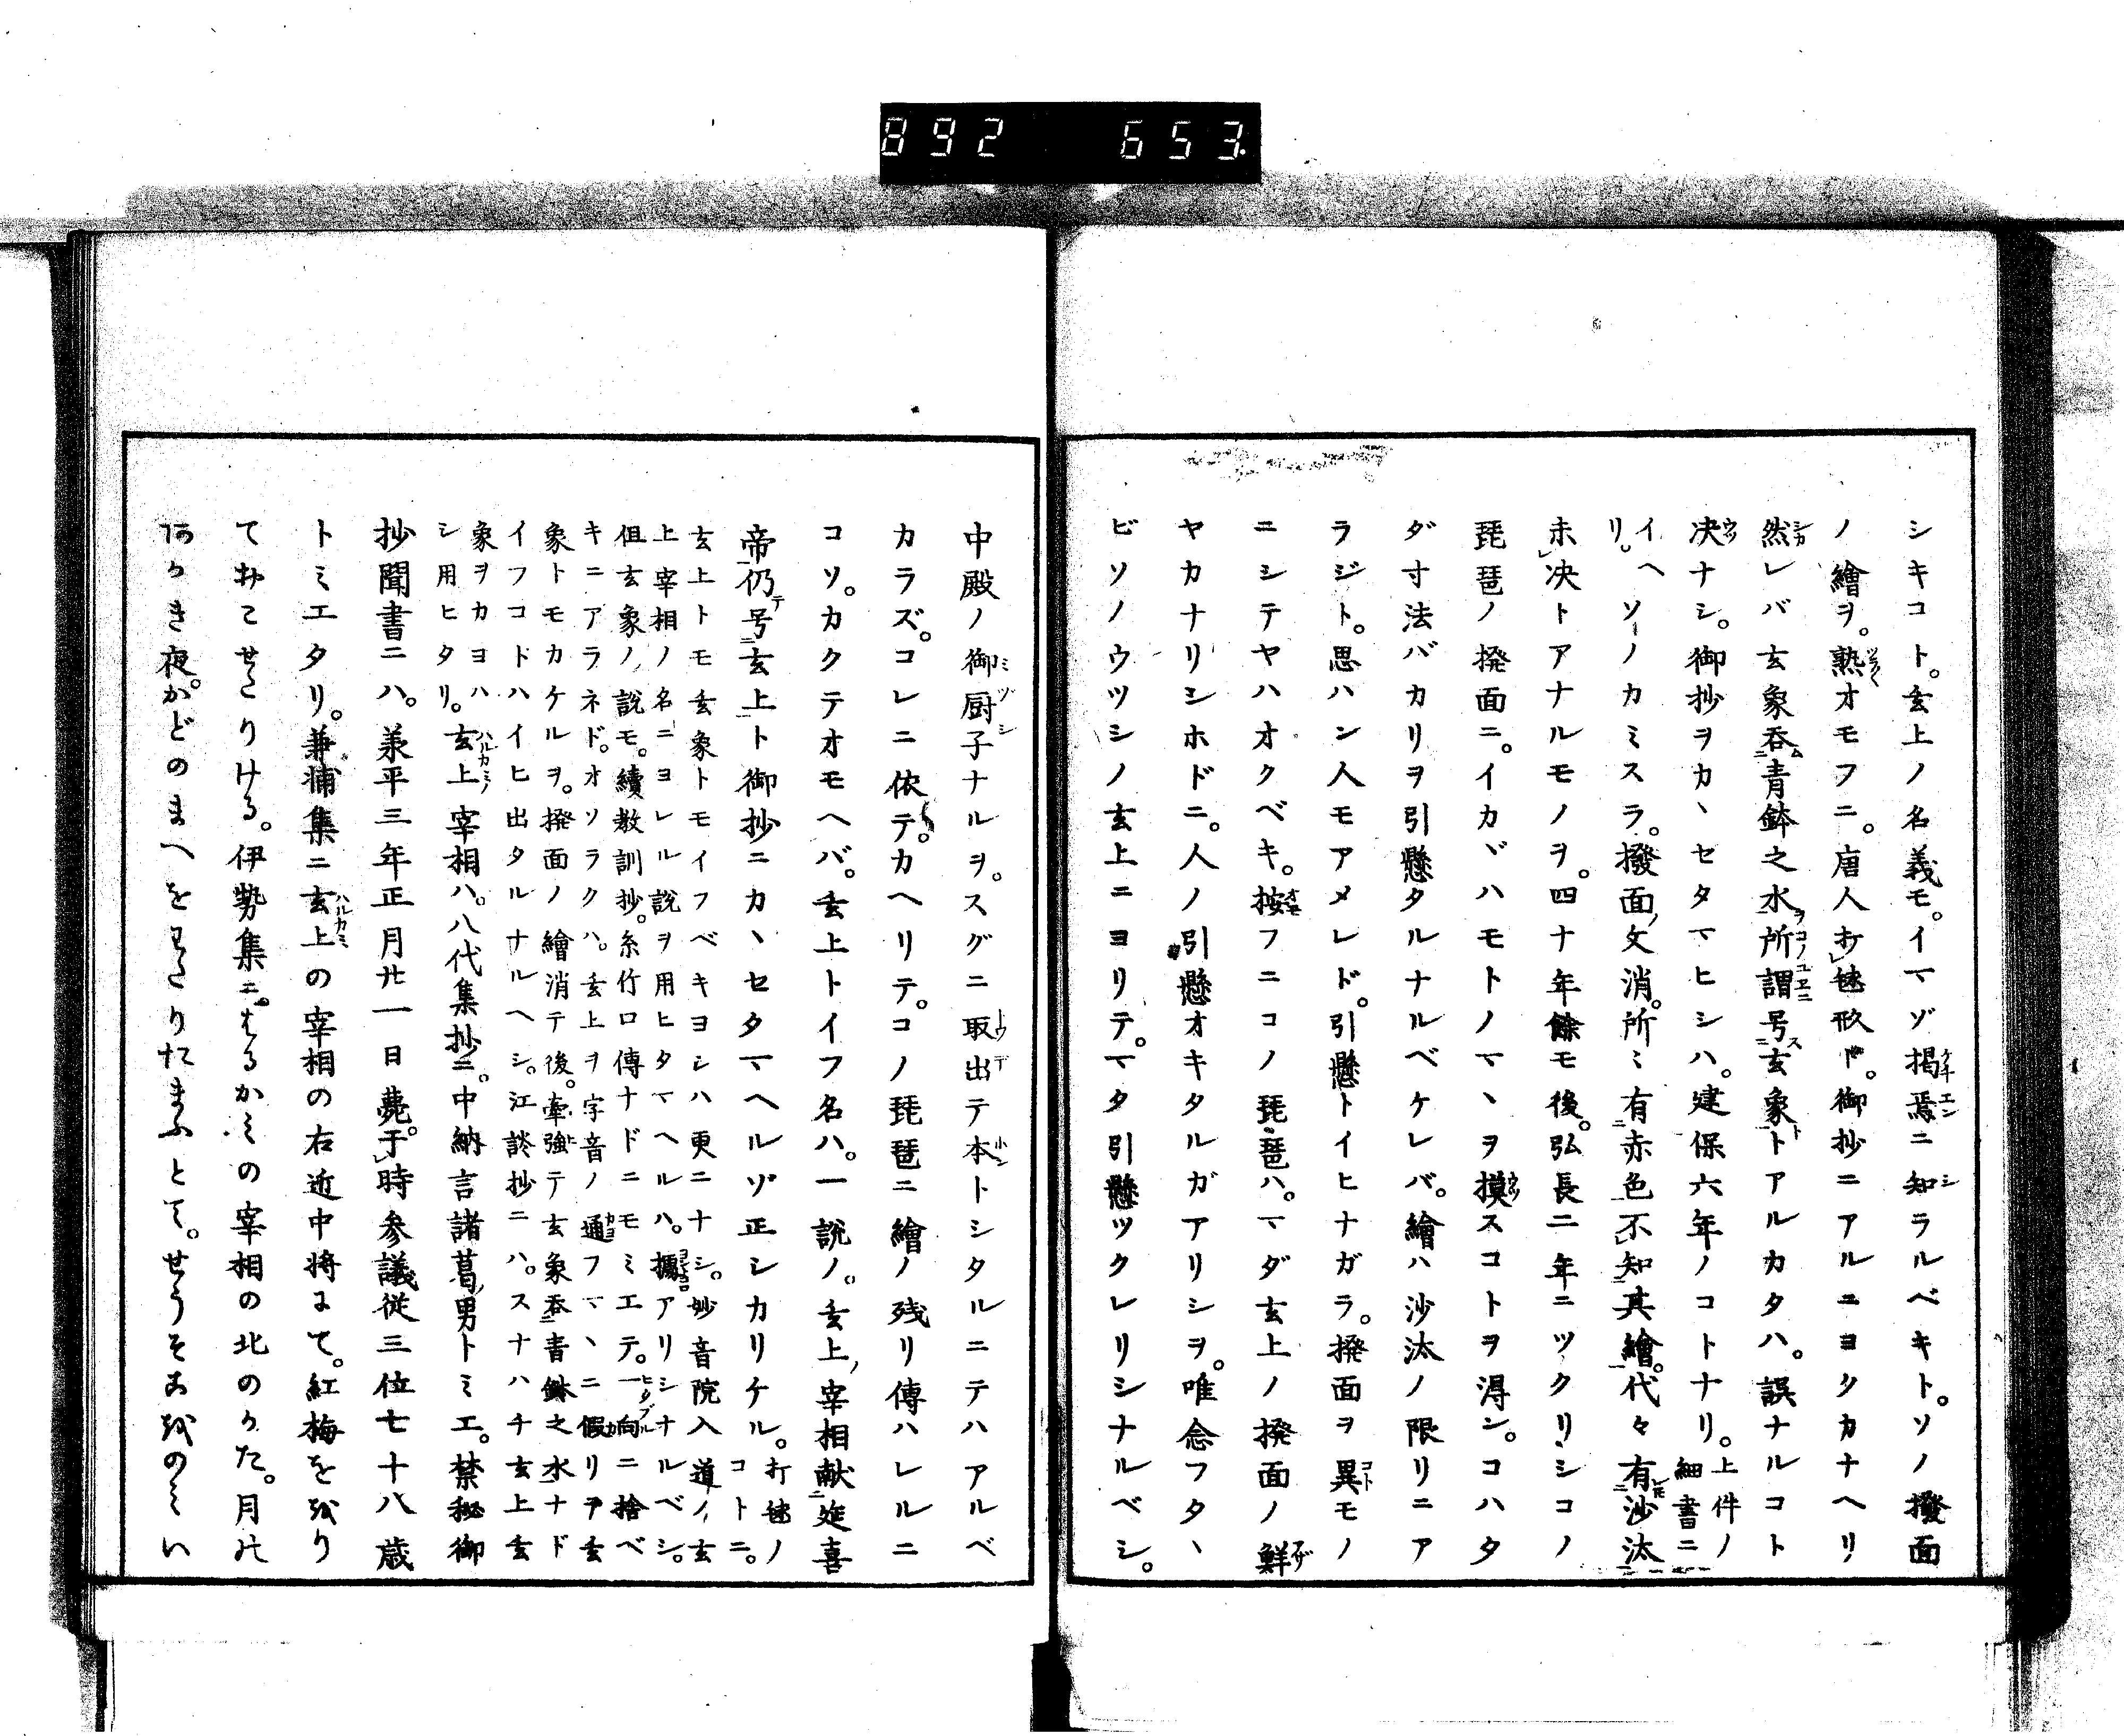 892 653
シキコト。玄上ノ名義モ。イマゾ掲焉ニ知ラルベキト。ソノ撥面
ノ繪ヲ。熟オモフニ。唐人打毬形ト。御抄ニアルニヨクカナヘリ
然レバ玄象呑青鉢之水所謂号玄象トアルカタハ。誤ナルコト
决ナシ。御抄ヲカヽセタマヒシハ。建保六年ノコトナリ。上件ノ細書ニ
イヘリ。ソノカミスラ。撥面文消。所ミ有赤色不知其繪。代々有沙汰
未决トアナルモノヲ。四十年餘モ後。弘長二年ニツクリシコノ
琵琶ノ撥面ニ。イカヾハモトノマヽヲ摸スコトヲ淂ン。コハタ
ダ寸法バカリヲ引懸タルナルベケレバ。繪ハ沙汰ノ限リニア
ラジト。思ハン人モアメレド。引懸トイヒナガラ。撥面ヲ異モノ
ニシテヤハオクベキ。按フニコノ琵琶ハ。マダ玄上ノ撥面ノ鮮
ヤカナリシホドニ。人ノ引懸オキタルガアリシヲ。唯念フタヽ
ビソノウツシノ玄上ニヨリテ。マタ引懸ツクレリシナルベシ。
中殿ノ御厨子ナルヲ。スグニ取出テ本トシタルニテハアルベ
カラズ。コレニ依テ。カヘリテ。コノ琵琶ニ繪ノ残リ傳ハレルニ
コソ。カクテオモヘバ。玄上トイフ名ハ。一説ノ。玄上宰相献延喜
帝仍号玄上ト御抄ニカヽセタマヘルゾ正シカリケル。打毬ノコトニ。
玄上トモ玄象トモイフベキヨシハ更ニナシ。妙音院入道ノ玄
上宰相ノ名ニヨレル説ヲ用ヒタマヘルハ。據アリシナルベシ。
但玄象ノ説モ。續教訓抄。糸竹口傳ナドニモミエテ。一向ニ捨ベ
キニアラネド。オソラクハ。玄上ヲ字音ノ通フマヽニ假リヲ玄
象トモカケルヲ。撥面ノ繪消テ後。牽強テ玄象呑青鉢之水ナド
イフコトハイヒ出タルナルヘシ。江談抄ニハ。スナハチ玄上玄
象ヲカヨハシ用ヒタリ。玄上宰相ハ。八代集抄ニ。中納言諸葛男トミエ。禁秘御
抄聞書ニハ。兼平三年正月廿一日薨。于時参議従三位七十八歳
トミエタリ。兼浦集ニ玄上の宰相の右近中将にて。紅梅ををり
ておこせたりける。伊勢集ニ。はるかみの宰相の北のかた。月の
あかき夜。かどのまへをわたりたまふとて。せうそこをのみい